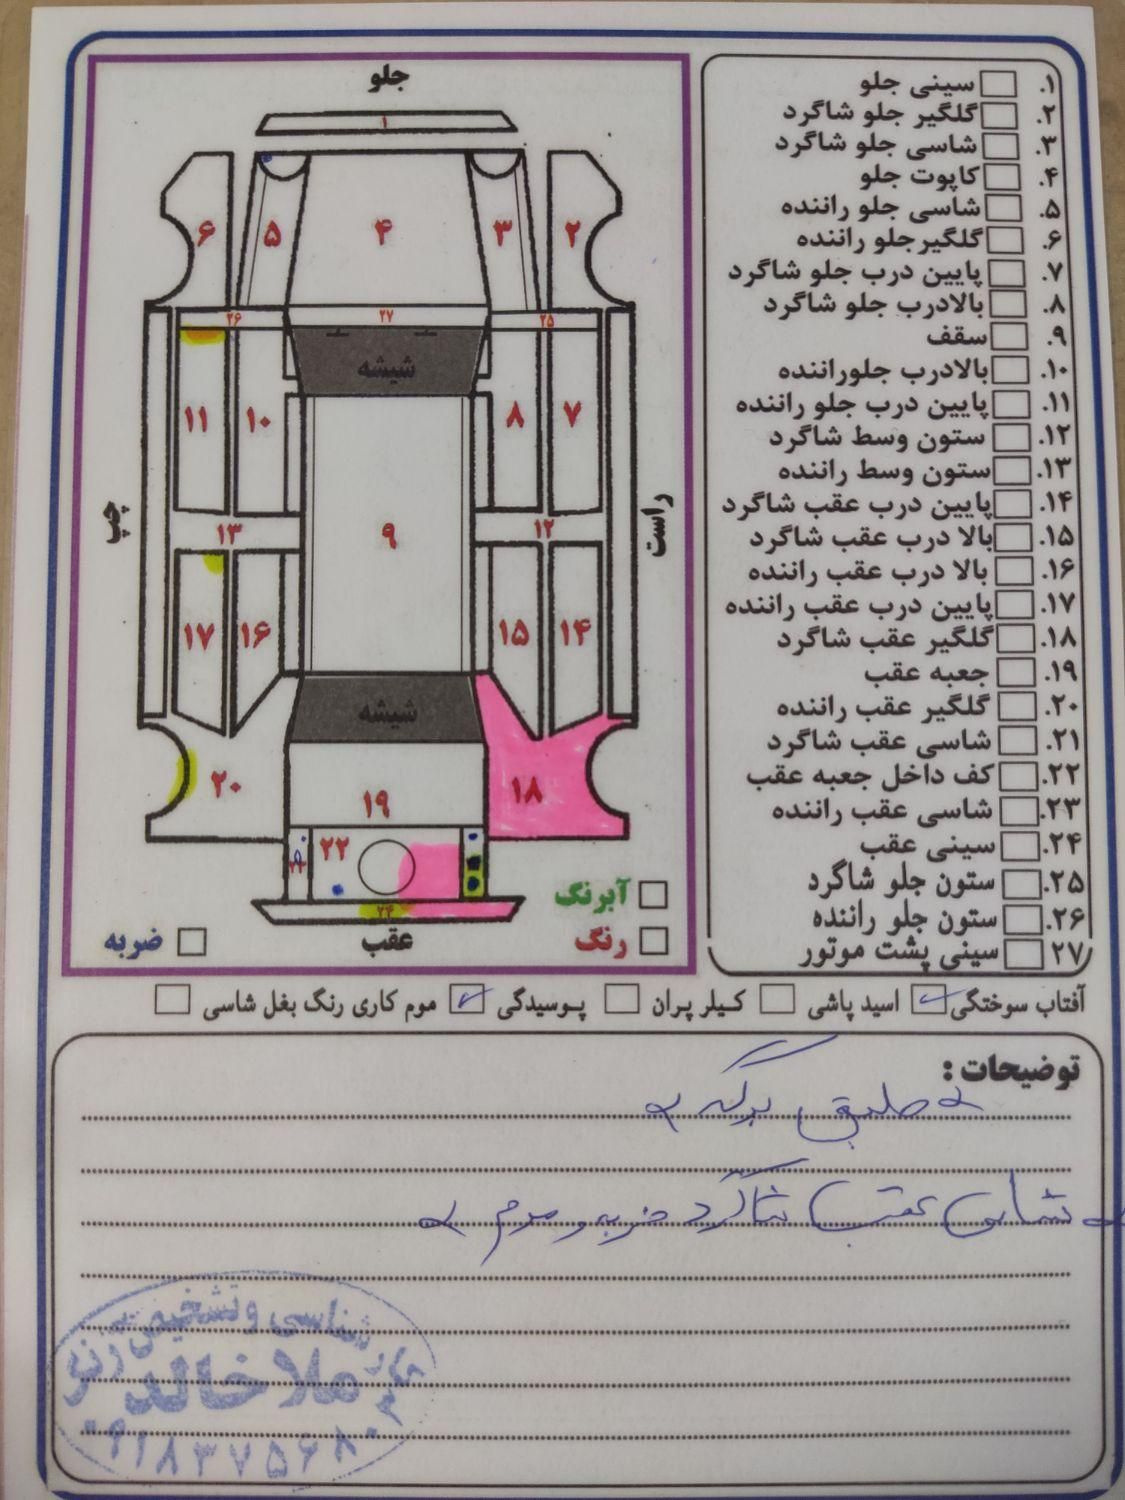 جلو
۱
۶
۵
۴
۳
۲
۲۶
۲۷
۲۵
شیشه
۱۱
۱۰
۸
۷
چپ
راست
۱۳
۹
۱۲
۱۷
۱۶
۱۵
۱۴
شیشه
۲۰
۱۹
۱۸
۲۲
۲۴
عقب
آبرنگ
رنگ
ضربه
۱. سینی جلو
۲. گلگیر جلو شاگرد
۳. شاسی جلو شاگرد
۴. کاپوت جلو
۵. شاسی جلو راننده
۶. گلگیرجلو راننده
۷. پایین درب جلو شاگرد
۸. بالادرب جلو شاگرد
۹. سقف
۱۰. بالادرب جلوراننده
۱۱. پایین درب جلو راننده
۱۲. ستون وسط شاگرد
۱۳. ستون وسط راننده
۱۴. پایین درب عقب شاگرد
۱۵. بالا درب عقب شاگرد
۱۶. بالا درب عقب راننده
۱۷. پایین درب عقب راننده
۱۸. گلگیر عقب شاگرد
۱۹. جعبه عقب
۲۰. گلگیر عقب راننده
۲۱. شاسی عقب شاگرد
۲۲. کف داخل جعبه عقب
۲۳. شاسی عقب راننده
۲۴. سینی عقب
۲۵. ستون جلو شاگرد
۲۶. ستون جلو راننده
۲۷. سینی پشت موتور
آفتاب سوختگی اسید پاشی کیلر پران پوسیدگی موم کاری رنگ بغل شاسی
توضیحات :
طبق برگه
شاسی عقب شاگرد ضربه و موم
کارشناسی و تشخیص رنگ
ملا خالد
۰۹۱۸۳۷۵۶۸۰